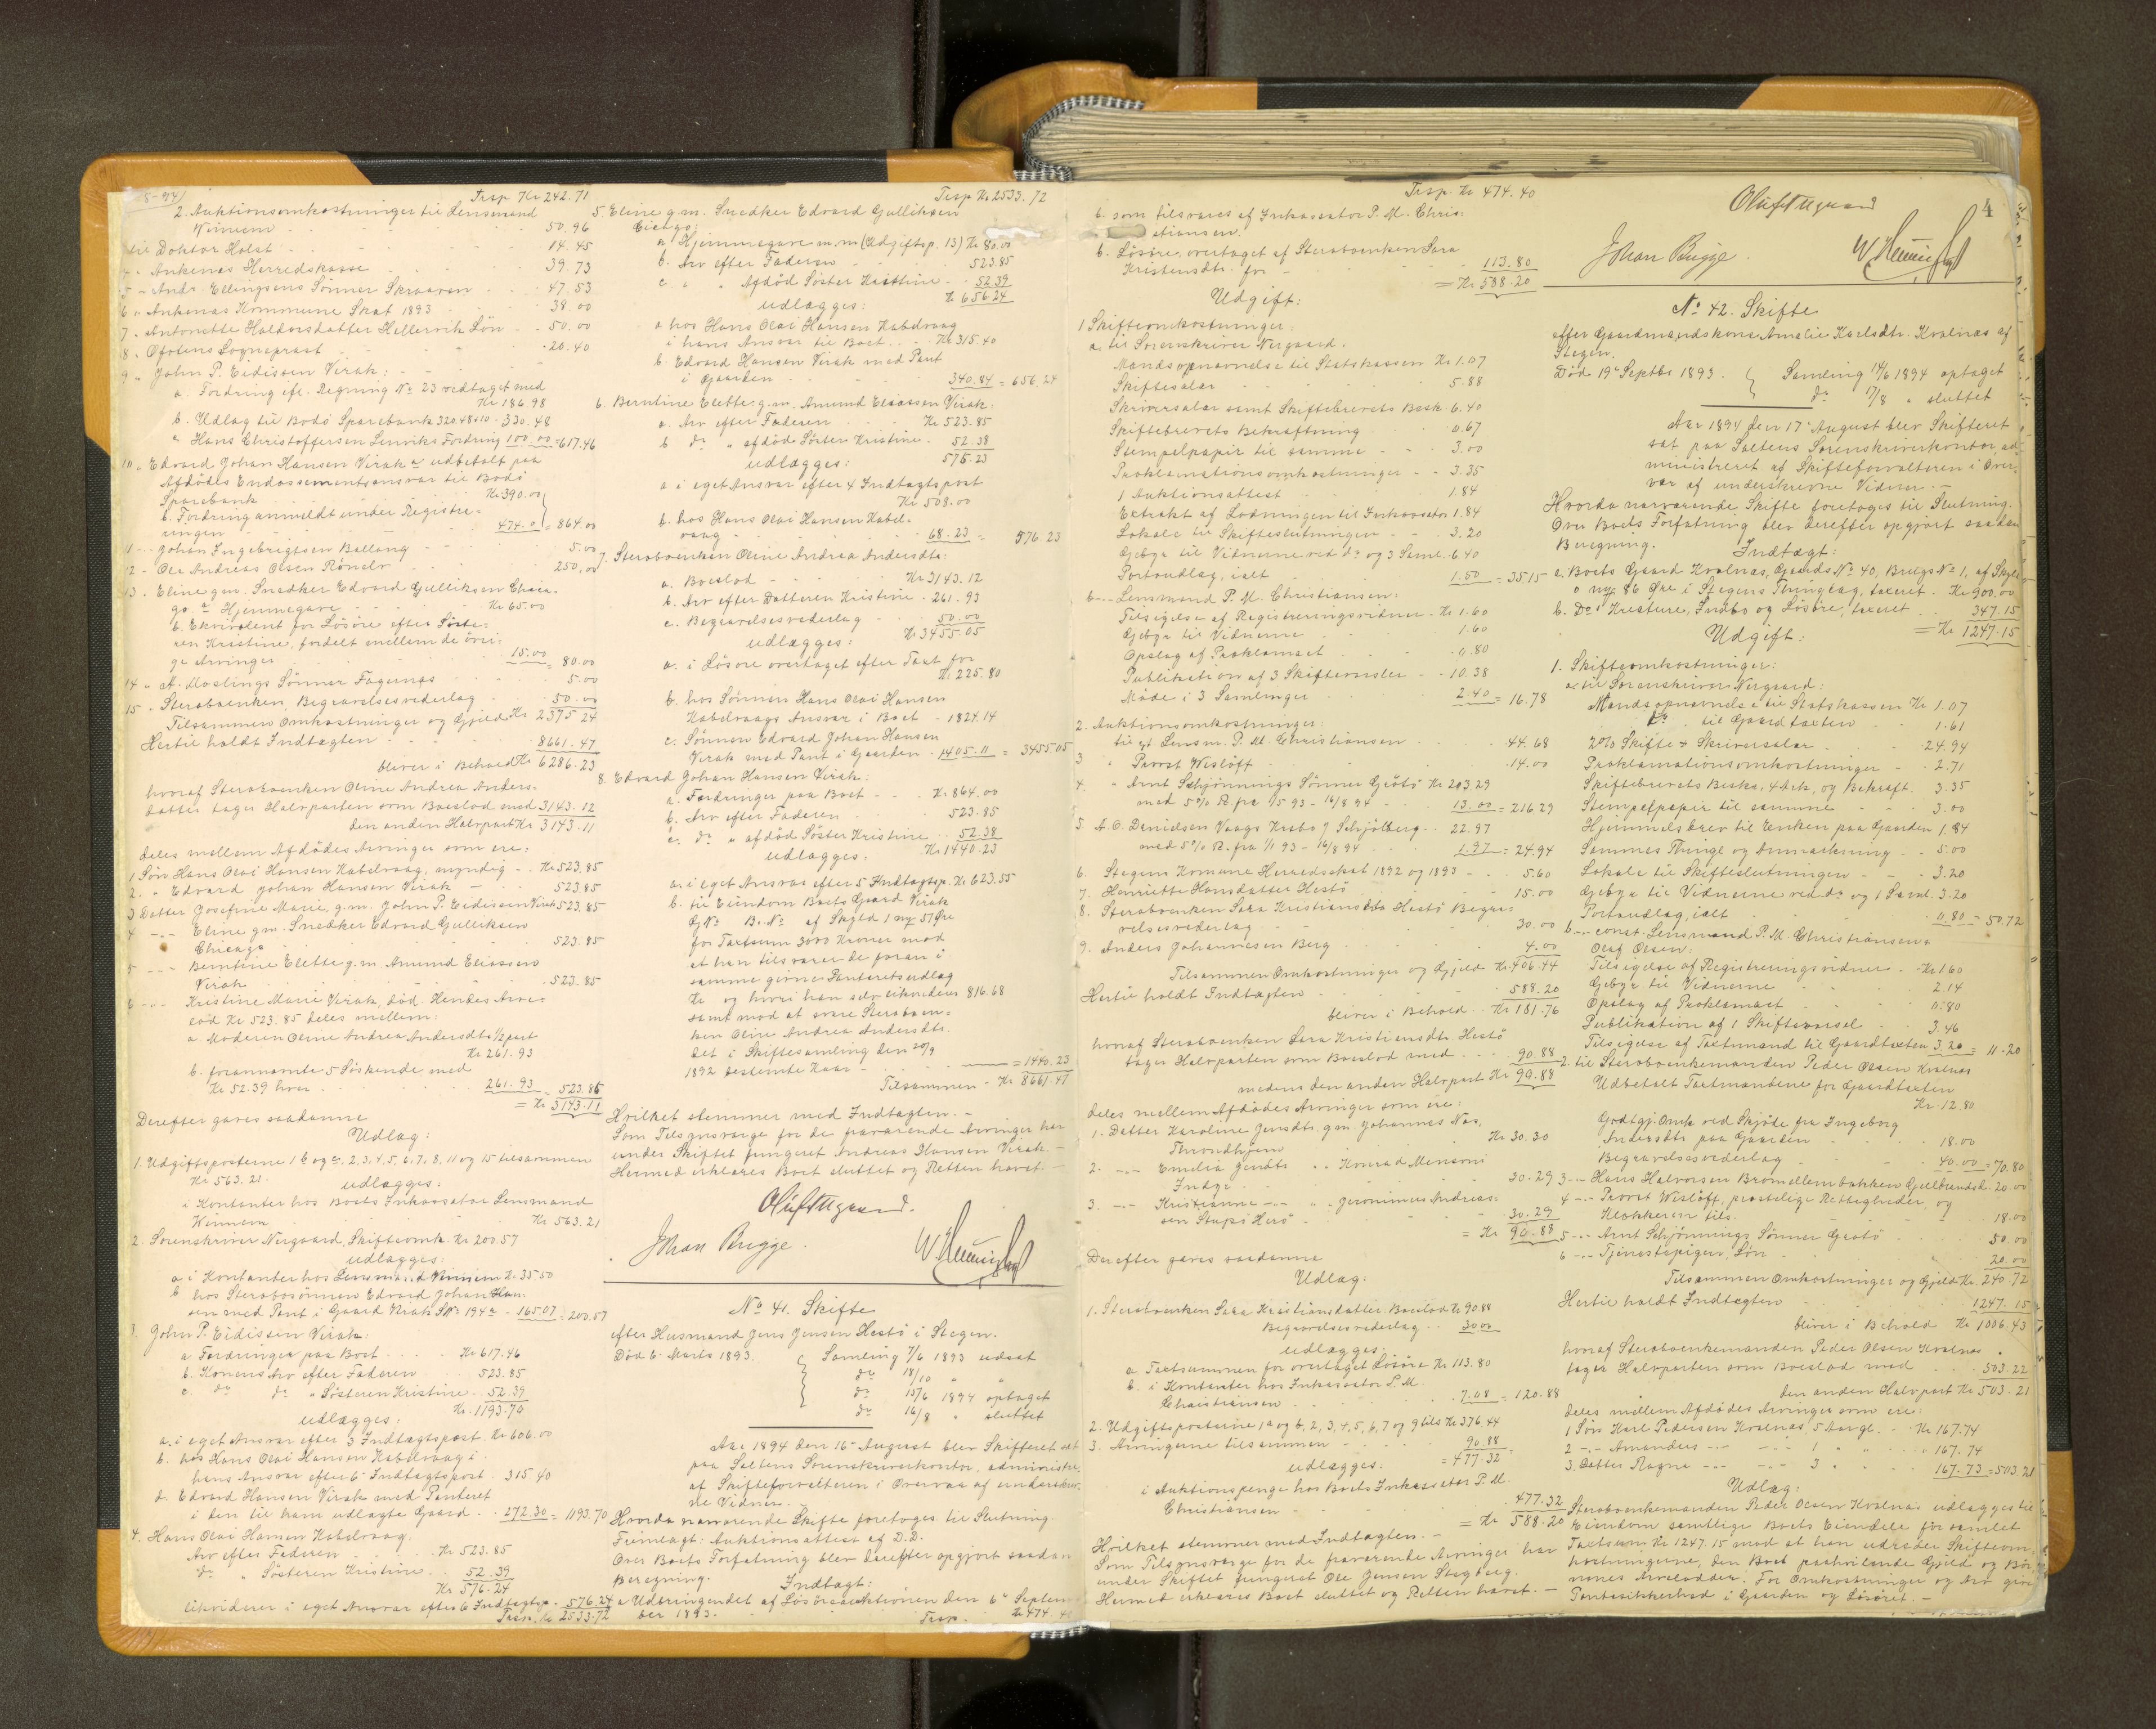 5-94)
Trsp Kr 242.71
2. Auktionsomkostninger til Lensmand
Winnem - - - 50.96
til Doktor Holst - - - 14.45
4 " Ankenæs Herredskasse - - 39.73
5 " Andr. Ellingsens Sønner Skraaven - - 47.53
6 " Ankenæs Kommune Skat 1893 - - 38.00
7 " Antonette Haldorsdatter Hellervik Løn - - 50.00
8 " Ofotens Sogneprest - - 20.40
9 " John P. Eidissen Virak: - -
a. Fordring ifl. Regning No 23 vedtaget med
Kr 186.98
b. Udlæg til Bodø Sparebank 320.48+10 - 330.48
" Hans Christoffersen Fordring 100.00 = 617.46
10 " Edvard Johan Hansen Virak a. udbetalt paa
Afdødes Endossementsansvar til Bodø
Sparebank - - Kr 390.00
b. Fordring anmeldt under Registre-
ringen - - 474.0 = 864.00
11 - - Johan Ingebrigtsen Ballang - - 5.00
12 - Ole Andreas Olsen - - 250.00
13 . Eline gm. Snedker Edvard Gulliksen Chica-
go. a Hjemmegave - - Kr 65.00
b. Ekvivalent for Løsøre efter Søste-
ren Kristine, fordelt mellem de øvri-
ge Arvinger - - 15.00 = 80.00
14 " A. Moslings Sønner Fagernæs - - 5.00
15 . Sterboenken, Begravelsesvederlag - - 50.00
Tilsammen Omkostninger og Gjæld Kr 2375.24
Hertil holdt Indtægten - - 8661.47
bliver i Behold Kr 6286.23
hvoraf Sterboenken Oline Andrea Anders-
datter tager Halvparten som Boeslod med 3143.12
den anden Halvpart Kr 3143.11
deles mellem Afdødes Arvinger som ere:
1 Søn Hans Olai Hansen Kabelvaag, myndig - - Kr 523.85
2. " Edvard Johan Hansen Virak - 523.85
3 Datter Josefine Marie, g.m. John P. Eidissen Virak 523.85
4 - - - Eline g.m. Snedker Edvard Gulliksen
Chicago - - 523.85
5 - - - Berntine Elette g.m. Amund Eliassen
Virak - - 523.85
6 - - - Kristine Marie Virak, død. Hendes Arve-
lod Kr 523.85 deles mellem:
a Moderen Oline Andrea Andersdtr ½ part
Kr 261.93
b. forannævnte 5 Søskende med
Kr 52.39 hver - - 261.93 523.86
= Kr 3143.11
Derefter gjøres saadanne
Udlæg:
1. Udgiftsposterne 1 b og c. 2, 3, 4, 5, 6, 7, 8, 11 og 15 tilsammen
Kr 563.21. udlægges:
i Kontanter hos Boets Inkassator Lensmand
Winnem - - Kr 563.21
2. Sorenskriver Nergaard, Skifteomk. Kr 200.57
udlægges:
a. i Kontanter hos Lensmand Winnem Kr 35.50
b hos Sterbosønnen Edvard Johan Han-
sen med Pant i Gaard Virak No 194a - 165.07 = 200.57
3. John P. Eidissen Virak:
a Fordringer paa Boet - - Kr 617.46
b. Konens Arv efter Faderen - 523.85
c. do do " Søsteren Kristine - 52.39
Kr. 1193.70
udlægges:
a. i eget Ansvar efter 3 Indtægtspost. Kr 606.00
b. hos Hans Olai Hansen Kabelvaag i
hans Ansvar efter 6 Indtægtspost . 315.40
d. Edvard Hansen Virak med Panteret
i den til ham udlagte Gaard - 272.30 = 1193.70
4. Hans Olai Hansen Kabelvaag.
Arv efter Faderen - Kr 523.85
do " Søsteren Kristine - 52.39
Kr 576.24
likviderer i eget Ansvar efter 6 Indtægtsp - 576.24
Trsp. Kr 2533.72
Trsp Kr 2533.72
5 Eline g.m. Snedker Edvard Gulliksen
Chicago:
a Hjemmegave m.m (Udgiftsp. 13) Kr 80.00
b. Arv efter Faderen - - 523.85
c. " " Afdød Søster Kristine - 52.39
Kr 656.24
udlægges:
a hos Hans Olai Hansen Kabelvaag
i hans Ansvar til Boet - - Kr 315.40
b. Edvard Hansen Virak med Pant
i Gaarden - - 340.84 = 656.24
6. Berntine Elette g.m. Amund Eliassen Virak:
a. Arv efter Faderen - Kr 523.85
b do " afdøde Søster Kristine - 52.38
576.23
udlægges:
a i eget Ansvar efter 4 Indtægtspost
Kr 508.00
b. hos Hans Olai Hansen Kabel-
vaag - - 68.23 = 576.23
7. Sterboenken Oline Andrea Andersdtr:
a. Boeslod - - Kr 3143.12
b. Arv efter Datteren Kristine - 261.93
c. Begravelsesvederlag - - 50.00
Kr 3455.05
udlægges:
a. i Løsøre overtaget efter Taxt for
Kr 225.80
b. hos Sønnen Hans Olai Hansen
Kabelvaags Ansvar i Boet - 1824.14
c. Sønnen Edvard Johan Hansen
Virak med Pant i Gaarden - 1405.11 = 3455.05
8. Edvard Johan Hansen Virak:
a. Fordringer paa Boet - - Kr 864.00
b. Arv efter Faderen - 523.85
c. do " afdød Søster Kristine - 52.38
Kr 1440.23
udlægges:
a. i eget Ansvar efter 5 Indtægtsp. Kr 623.55
b. til Eiendom Boets Gaard Virak
G.No B.No af Skyld 1 my 57 Øre
for Taxtsum 3000 Kroner mod
at han tilsvarer de foran i
samme givne Panteretsudlæg
Kr og hvori han selv likviderer 816.68
samt mod at svare Sterboen-
ken Oline Andrea Andersdtr.
det i Skiftesamling den 20/9
1892 bestemte Kaar - - = 1440.23
Tilsammen - Kr 8661.47
Hvilket stemmer med Indtægten. -
Som Tilsynsværge for de fraværende Arvinger har
under Skiftet fungeret Andreas Hansen Virak. -
Hermed erklæres Boet sluttet og Retten hævet. -
Oluf Nergaard.
Johan Brygge.
No 41. Skifte
efter Husmand Jens Jensen Hestø i Stegen.
Død 6. Marts 1893.
Samling 7/6 1893 udsat
do 18/10 " "
do 13/6 1894 optaget
do 16/8 " sluttet
Aar 1894 den 16de August blev Skifteret sat
paa Saltens Sorenskriverkontor, administre-
af Skifteforvalteren i Overvær af underskrev-
ne Vidner. -
Hvorda nærværende Skifte foretoges til Slutning.
Fremlagt: Auktionsattest af D.D.
Over Boets Forfatning blev derefter opgjort saadan
Beregning.
Indtægt:
a Udbringendet af Løsøreauktionen den 6te Septem-
ber 1893. Trsp. Kr 474.40
Trsp. Kr 474.40
4
b. som tilsvares af Inkassator P. M. Chris-
tiansen.
b. Løsøre, overtaget af Sterboenken Sara
Kristensdtr. for - - 113.80
= Kr 588.20
Udgift:
1 Skifteomkostninger:
a. til Sorenskriver Nergaard.
Mandsopnævnelse til Statskassen Kr 1.07
Skiftesalær - - 5.88
Skriversalær samt Skiftebrevets Besk. 6.40
Skiftebrevets Bekræftning - - 0.67
Stempelpapir til samme - - 3.00
Proklamationsomkostninger - - 3.35
1 Auktionsattest - - 1.84
Extrakt af Lodningen til Inkassator 1.84
Lokale til Skifteslutningen - - 3.20
Gebyr til Vidnerne ved do og 3 Saml. 6.40
Portoudlæg, ialt - - 1.50 = 35.15
b - - Lensmand P. M. Christiansen:
Tilsigelse af Registreringsvidner - Kr 1.60
Gebyr til Vidnerne - - 1.60
Opslag af Proklamaet - - 0.80
Publikation af 3 Skiftevarsler - - 10.38
Møde i 3 Samlinger - - 2.40 = 16.78
2. Auktionsomkostninger:
til gl Lensm. P. M. Christiansen - - 44.68
3 " Provst Wisløff - - 14.00
4. " Arnt Schjønnings Sønner Grøtø Kr 203.29
med 5 % R. fra 1/5 93 - 16/8 94 - 13.00 = 216.29
5 A. O. Danielsen Vaags Krsbo / Schjølberg - 22.97
med 5 % R. fra 1/1 93 - 16/8 94 - 1.97 = 24.94
6. Stegens Komune Herredsskat 1892 og 1893 - - 5.60
7. Henriette Hansdatter Hestø - - 15.00
8. Sterboenken Sara Kristiansdtr Hestø Begra-
velsesvederlag - - 30.00
9. Anders Johannesen Berg - - 4.00
Tilsammen Omkostninger og Gjæld Kr. 406.44
Hertil holdt Indtægten - - 588.20
bliver i Behold - - Kr 181.76
hvoraf Sterboenken Sara Kristiansdtr. Hestø
tager Halvparten som Boeslod med - - 90.88
medens den anden Halvpart Kr 90.88
deles mellem Afdødes Arvinger som ere:
1. Datter Karoline Jensdtr. g.m. Johannes Næs,
Throndhjem - - Kr 30.30
2. - - Emelia Jensdtr " " Konrad
Indre - - 30.29
3. - - Kristianne - - " " Jeronimus Andreas-
sen Herø - - 30.29
= Kr 90.88
Derefter gjøres saadanne
Udlæg:
1. Sterboenken Sara Kristiansdatter Boeslod Kr 90.88
Begravelsesvederlag - - 30.00
udlægges:
a. Taxtsummen for overtaget Løsøre Kr 113.80
b. i Kontanter hos Inkassator P. M.
Christiansen - - 7.08 = 120.88
2. Udgiftsposterne 1 a og b, 2, 3, 4, 5, 6, 7 og 9 tils Kr 376.44
3. Arvingerne tilsammen - - 90.88
= 477.32
udlægges:
i Auktionspenge hos Boets Inkassator P. M.
Christiansen - - 477.32
= Kr 588.20
Hvilket stemmer med Indtægten. -
Som Tilsynsværge for de fraværende Arvinger har
under Skiftet fungeret Ole Jensen Stegberg.
Hermed erklæres Boet sluttet og Retten hævet. -
Oluf Nergaard
Johan Brygge.
No 42. Skifte
efter Gaardmandskone Amalie Karlsdtr. Kvalnæs af
Stegen.
Død 19de Septbr 1893.
Samling 14/6 1894 optaget
do 17/8 " sluttet
Aar 1894 den 17de August blev Skifteret
sat paa Saltens Sorenskriverkontor, ad-
ministreret af Skifteforvalteren i Over-
vær af underskrevne Vidner. -
Hvorda nærværende Skifte foretoges til Slutning.
Over Boets Forfatning blev derefter opgjort saadan
Beregning.
Indtægt:
a. Boets Gaard Kvalnæs, Gaards No 40, Brugs No 1, af Skyld
0 my 86 Øre i Stegens Thinglag, taxeret. Kr 900.00
b. Do Kreature, Indbo og Løsøre, taxeret - 347.15
= Kr 1247.15
Udgift:
1. Skifteomkostninger:
a til Sorenskriver Nergaard:
Mandsopnævnelse til Statskassen Kr 1.07
Do til Gaardtaxten - - 1.61
2% Skifte & Skriversalær - - 24.94
Proklamationsomkostninger - - 2.71
Skiftebrevets Beskr, 4 Ark, og Bekræft. 3.35
Stempelpapir til samme - - 3.00
Hjemmelsbrev til Enken paa Gaarden 1.84
Sammes Thingl og Anmærkning - - 5.00
Lokale til Skifteslutningen - - 3.20
Gebyr til Vidnerne ved do og 1 Saml. 3.20
Portoudlæg, ialt - - 0.80 = 50.72
b - - const. Lensmand P. M. Christiansen &
Olaf Olsen:
Tilsigelse af Registreringsvidner - - Kr 1.60
Gebyr til Vidnerne - - 2.14
Opslag af Proklamaet - - 0.80
Publikation af 1 Skiftevarsel - - 3.46
Tilsigelse af Taxtmænd til Gaardtaxten 3.20 = 11.20
2. til Sterboenkemanden Peder Olsen Kvalnæs
Udbetalt Taxtmændene for Gaardtaxten
Kr. 12.80
Godtgj. Omk ved Skjøde fra Ingeborg
Andersdtr paa Gaarden - - 18.00
Begravelsesvederlag - - 40.00 = 70.80
3 - - Hans Halvorsen Bromellembakken Gulbrandsd. 20.00
4 - - Provst Wisløff, prestelige Rettigheder, og
Klokkeren tils. - - 18.00
5 - - Arnt Schjønnings Sønner Grøtø - - 50.00
6 - - Tjenestepigen, Løn - - 20.00
Tilsammen Omkostninger og Gjæld Kr. 240.72
Hertil holdt Indtægten - - 1247.15
bliver i Behold Kr 1006.43
hvoraf Sterboenkemanden Peder Olsen Kvalnæs
tager Halvparten som Boeslod med - - 503.22
den anden Halvpart Kr 503.21
deles mellem Afdødes Arvinger som ere:
1 Søn Karl Pedersen Kvalnæs, 5 Aar gl. - Kr 167.74
2 - - Amandus - - - - 1 " " 167.74
3. Datter Ragna - - - - 3 " " 167.73 = 503.21
Udlæg:
Sterboenkemanden Peder Olsen Kvalnæs udlægges til
Eiendom samtlige Boets Eiendele for samlet
Taxtsum Kr 1247.15 mod at han udreder Skifteom-
kostningerne, den Boet paahvilende Gjæld og Bør-
nenes Arvelodder. For Omkostninger og Arv gives
Pantesikkerhed i Gaarden og Løsøret. -